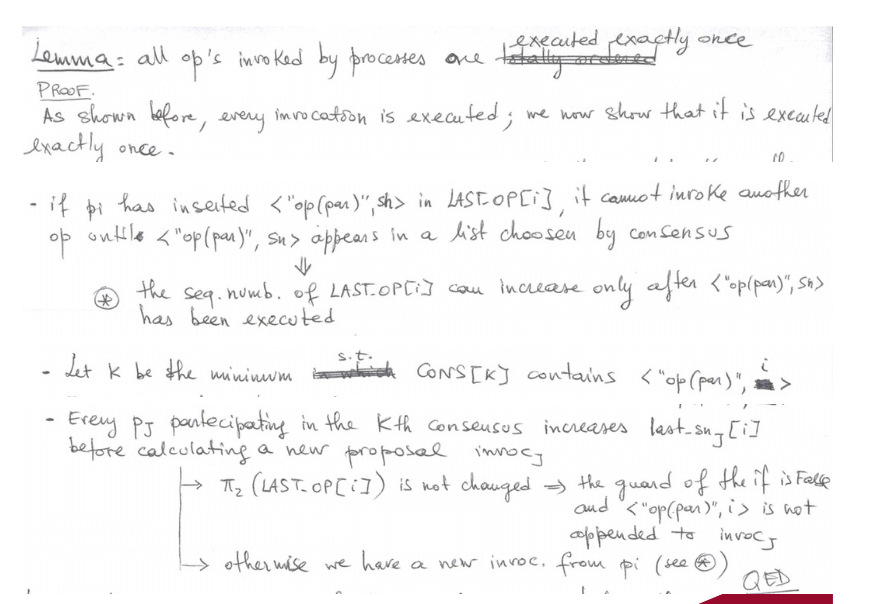 Lemma: all op's invoked by processes are executed exactly once
PROOF.
As shown before, every invocation is executed; we now show that it is executed
exactly once.
- if pi has inserted <"op(par)", sn> in LAST_OP[i], it cannot invoke another
op untill <"op(par)", sn> appears in a list choosen by consensus
⇓
⊛ the seq. numb. of LAST_OP[i] can increase only after <"op(par)", sn>
has been executed
- Let K be the minimum s.t. CONS[K] contains <"op(par)", i>
- Every pJ partecipating in the Kth consensus increases last_snJ[i]
before calculating a new proposal invocJ
→ π2 (LAST_OP[i]) is not changed ⇒ the guard of the if is False
and <"op(par)", i> is not
appended to invocJ
→ otherwise we have a new invoc. from pi (see ⊛)
QED